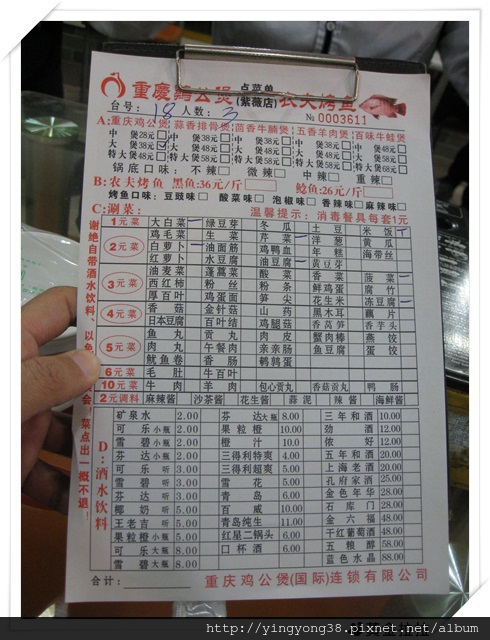 重慶鸡公煲 点菜单 (紫薇店) 农夫烤鱼
台号: 18 人数: 3 № 0003611
A:重庆鸡公煲 蒜香排骨煲 茴香牛腩煲 五香羊肉煲 百味牛蛙煲
中 煲28元□ 中 煲38元□ 中 煲38元□ 中 煲38元□ 中 煲48元□
大 煲38元□ 大 煲48元□ 大 煲48元□ 大 煲48元□ 大 煲58元□
特大煲48元□ 特大煲58元□ 特大煲58元□ 特大煲58元□ 特大煲68元□
锅底口味: 不辣□ 微辣□ 中辣□ 重辣□
B: 农夫烤鱼 黑鱼:36元/斤□ 鲶鱼:26元/斤□
烤鱼口味: 豆豉味□ 酸菜味□ 泡椒味□ 香辣味□ 麻辣味□
C:涮菜: 温馨提示: 消毒餐具每套1元
1元菜 大白菜 绿豆芽 冬瓜 土豆 米饭
2元菜 鸡毛菜 生菜 芹菜 洋葱 黄瓜
白萝卜 油面筋 鸡鸭血 年糕 海带丝
红萝卜 水豆腐 油豆腐 黄豆芽
3元菜 油麦菜 蓬蒿菜 酸菜 香菜 菠菜
西红柿 粉丝 粉条 鲜鸡蛋 腐竹
厚百叶 鸡蛋面 笋尖 花生米 冻豆腐
4元菜 香菇 金针菇 山药 黑木耳 藕片
日本豆腐 百叶结 鸡腿菇 香莴笋 香芋头
5元菜 鱼丸 贡丸 肉皮 蟹肉棒 燕饺
肉丸 午餐肉 亲亲肠 鱼豆腐 蛋饺
鱿鱼卷 香肠 鹌鹑蛋
6元菜 毛肚 牛百叶
10元菜 牛肉 羊肉 包心贡丸 香菇贡丸 鸭肠
2元调料 麻辣酱 沙茶酱 花生酱 蒜泥 辣酱 海鲜酱
谢绝自带酒水饮料、以免
会!菜点出一概不退!
D:酒水饮料
矿泉水 2.00 芬达大瓶 8.00 三年和酒 10.00
可乐小瓶 2.00 果粒橙 10.00 劲酒 12.00
雪碧小瓶 2.00 橙汁 10.0 侬好 12.00
芬达小瓶 2.00 三得利特爽 4.00 五年和酒 20.00
可乐听 3.00 三得利超爽 5.00 上海老酒 20.00
雪碧听 3.00 雪花 5.00 孔府家酒 25.00
芬达听 3.00 青岛 6.00 金色年华 28.00
椰奶听 5.00 百威 10.00 石库门 28.00
王老吉听 5.00 青岛纯生 11.00 金六福 48.00
果粒橙小瓶 5.00 红星二锅头 6.00 干红葡萄酒 48.00
可乐大瓶 口杯酒 6.00 五粮醇 58.00
雪碧大瓶 蓝色水晶 88.00
合计: 重庆鸡公煲(国际)连锁有限公司
http://yingyong38.pixnet.net/album